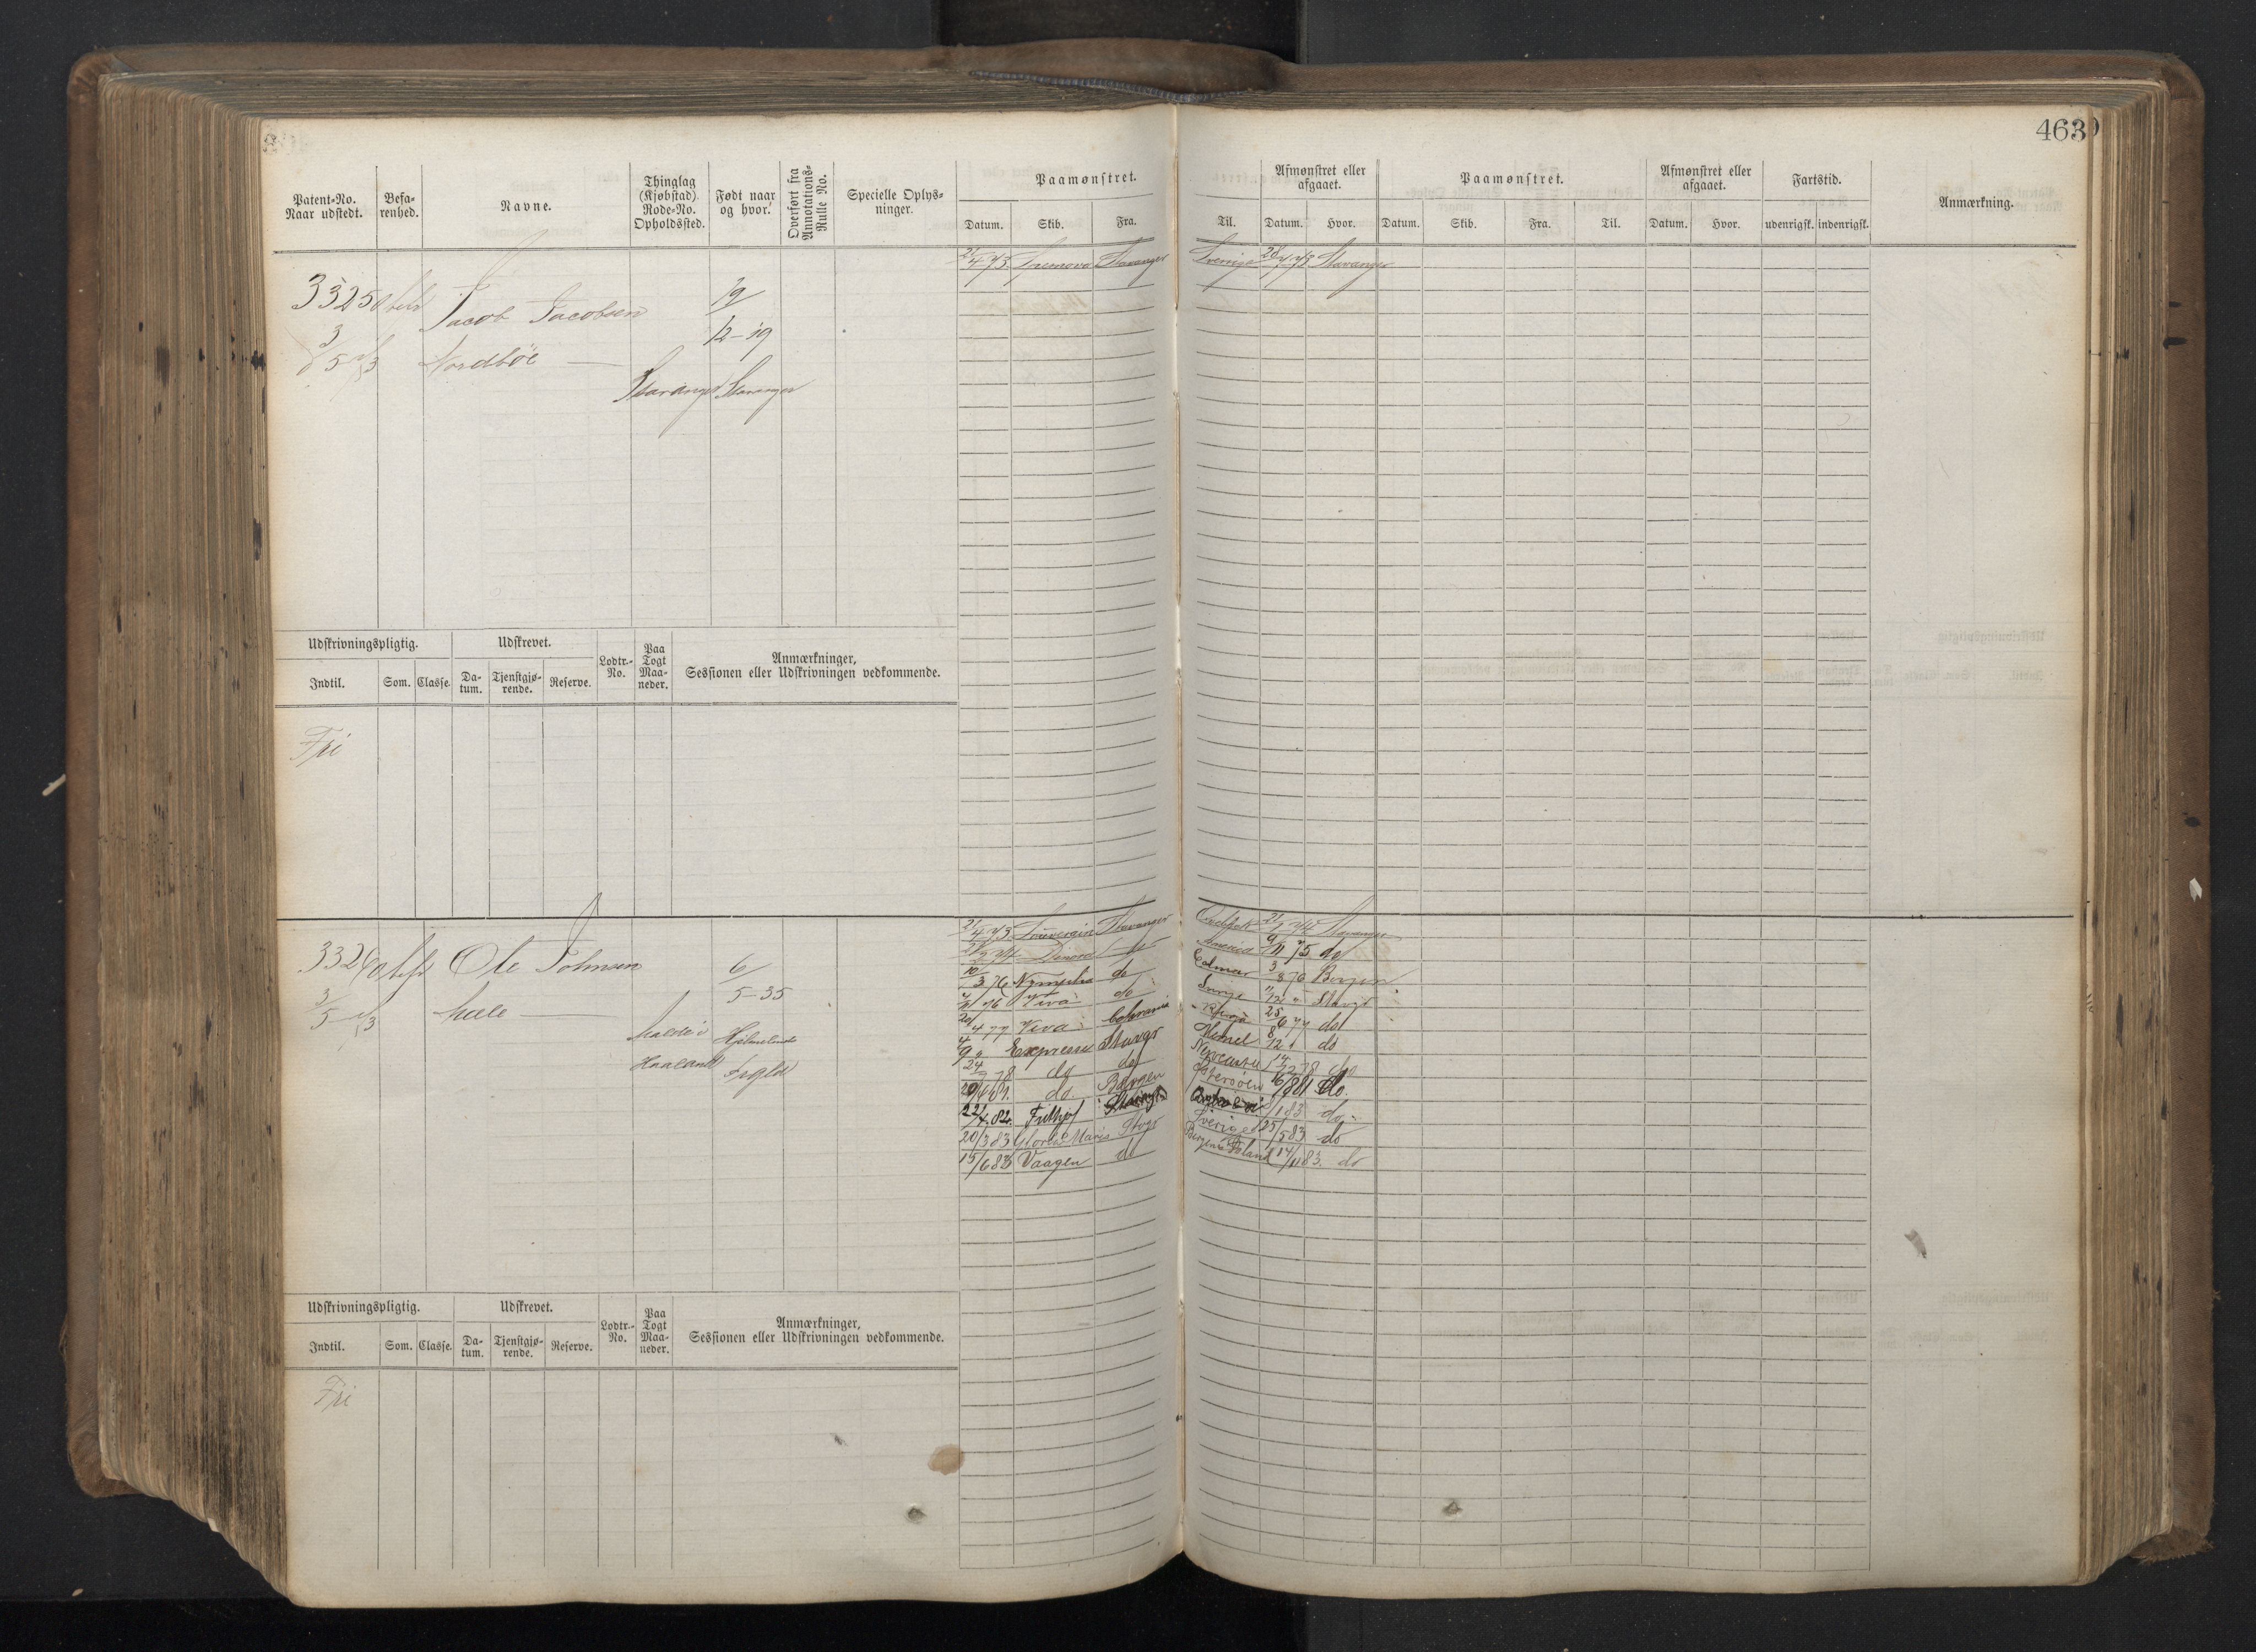 463
Patent-No. Naar udstedt.
Befarenhed.
Navne.
Thinglag (Kjøbstad) Rode-No. Opholdssted.
Født naar og hvor.
Overført fra Annotations-Rulle No.
Specielle Oplysninger.
Paamønstret.
Datum. Skib. Fra. Til.
Afmønstret eller afgaaet.
Datum. Hvor.
Paamønstret.
Datum. Skib. Fra. Til.
Afmønstret eller afgaaet.
Datum. Hvor.
Fartstid.
udenrigsk. indenrigsk.
Anmærkning.
4 73 Stavanger Sverige 28 73 Stavanger
3325 Jacob Jacobsen 19/
3/5 73 Nordbøe 12-19
Stavanger Stavanger
Udskrivningspligtig. Udskrevet. Lodtr.-No. Paa Togt Maaneder. Anmærkninger, Sessionen eller Udskrivningen vedkommende.
Indtil. Som. Classe. Datum. Tjenstgjørende. Reserve.
Fri
3326 Ole Johnsen 6/
3/5 73 Mæle 5-35
Hjelmeland
Haaland
4 73 Souverain Stavanger Stavanger
do America 9/11 75 do
10/3 76 Nymphen do 3/8 76 Bergen
76 Viva do 12 " Stavgr
20/4 77 Viva 25/6 77 do
4/9 " Express Stavgr Memel 8/12 " do
24/7 78 do do Newcastle 14/12 78 do
29/6 81. do Bergen Østersøen 16/8 81 do.
22/4. 82. Frithjof 83 do
20/3 83 Gloria Maris Stvgr Sverige 25/5 83 do
15/6 83 Vaagen do Bergen Island 14/11 83. do
Udskrivningspligtig. Udskrevet. Lodtr.-No. Paa Togt Maaneder. Anmærkninger, Sessionen eller Udskrivningen vedkommende.
Indtil. Som. Classe. Datum. Tjenstgjørende. Reserve.
Fri